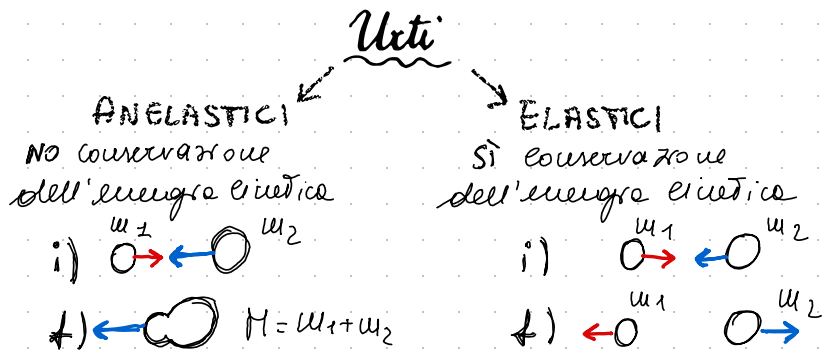 Urti
ANELASTICI
NO conservazione
dell'energia cinetica
m1 m2
i)
f) M = m1 + m2
ELASTICI
SÌ conservazione
dell'energia cinetica
m1 m2
i)
m1 m2
f)